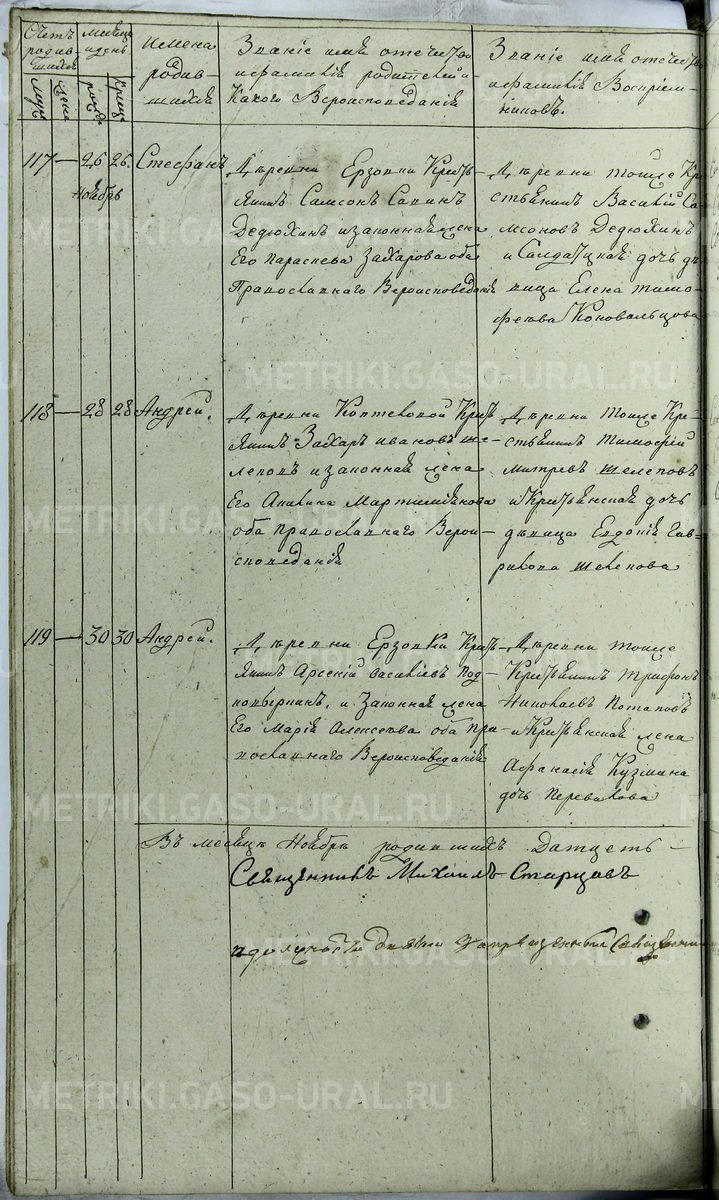 Счетъ родив-шихся
Мѣсяцъ и день
Имена родив-шихся
Званіе имя отечество и фамилія родителей и какого Вероисповеданія
Званіе имя отечество и фамилія Воспріем-никовъ.
Муж
Жена
рожд
Крещ
117 — 26 26. Стефанъ
Ноябрь
Деревни Ерзовки Кресть-
янинъ Самсонъ Савинъ
Дедюхинъ и законная жена
Его Параскева Захарова оба
Православнаго Вероисповеданія
Деревни тойже Кре-
стьянинъ Василій Са-
мсоновъ Дедюхинъ
и Салдатская дочь дѣ-
вица Елена Тимо-
феева Коновальцова
118 — 28 28 Андрей.
Деревни Коптеловой Кресть
янинъ Захаръ Ивановъ Ше-
леповъ и законная жена
Его Акилина Мартимьянова
оба Православнаго Верои-
споведанія
Деревни тойже Кре-
стьянинъ Тимофей
Митревъ Шелеповъ
и Крестьянская дочь
дѣвица Евдокія Гав-
рилова Шелепова
119 — 30 30 Андрей.
Деревни Ерзовки Кресть-
янинъ Арсеній Васильевъ Под-
ковыркинъ, и Законная жена
Его Марія Алексеева оба Пра-
вославнаго Вероисповеданія
Деревни тойже
Крестьянинъ Трифонъ
Николаевъ Потаповъ
и Крестьянская жена
Афанасія Кузмина
дочь Перевалова
Въ месяцѣ Ноябрѣ родившихъ Датцеть —
Священникъ Михаилъ Старцовъ
METRIKI.GASO-URAL.RU
METRIKI.GASO-URAL.RU
METRIKI.GASO-URAL.RU
METRIKI.GASO-URAL.RU
METRIKI.GASO-URAL.RU
METRIKI.GASO-URAL.RU